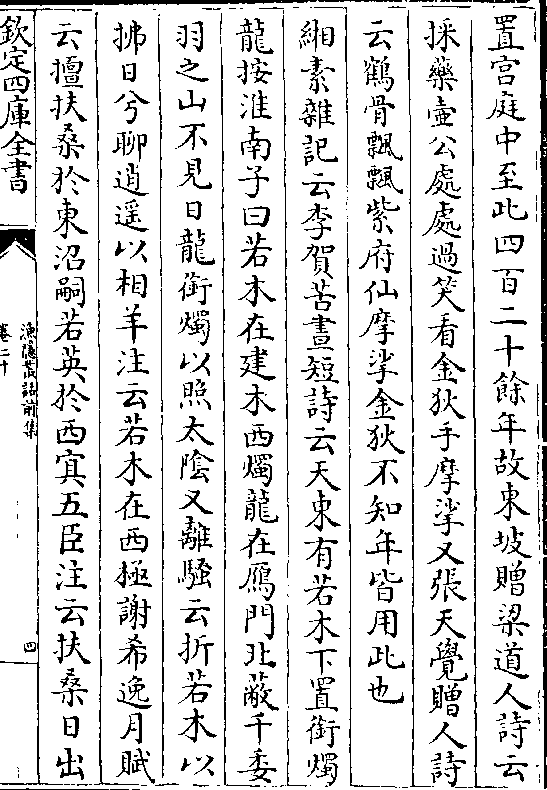 置宮庭中至此四百二十餘年故東坡贈梁道人詩云
採藥壺公處處過笑看金狄手摩挲又張天覺贈人詩
云鶴骨飄飄紫府仙摩挲金狄不知年皆用此也
緗素雜記云李賀苦晝短詩云天東有若木下置銜燭
龍按淮南子曰若木在建木西燭龍在鴈門北蔽于委
羽之山不見日龍銜燭以照太陰又離騷云折若木以
拂日兮聊逍遥以相羊注云若木在西極謝希逸月賦
云擅扶桑於東沼嗣若英於西㝠五臣注云扶桑日出
欽定四庫全書
漁隱叢話前集
卷二十
四